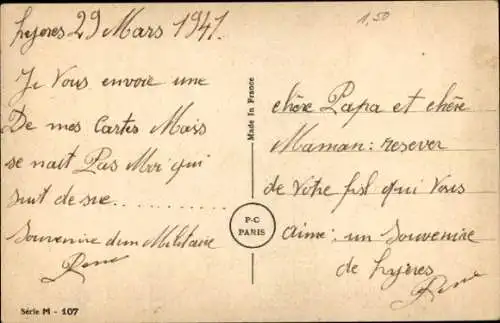 hyeres 29 Mars 1941.
1,50
Je Vous envoie une
De mes Cartes Mais
se nait Pas Moi qui
suit de sue...........
Souvenire dun Militaire
Rene
Made in France
P-C
PARIS
chère Papa et chère
Maman: resever
de Votre fil qui Vous
aime: un Souvenire
de hyères
Rene
Série M - 107